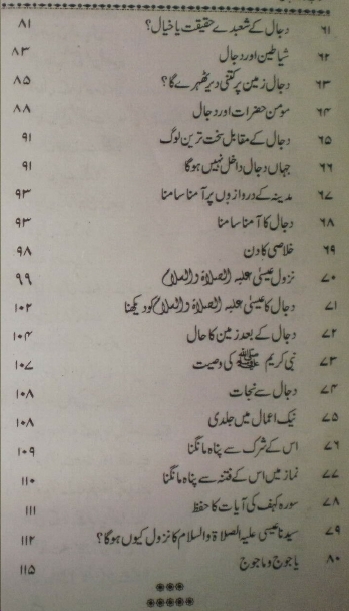 ۶۱ دجال کے شعبدے حقیقت یا خیال؟ ۸۱
۶۲ شیاطین اور دجال ۸۳
۶۳ دجال زمین پر کتنی دیر ٹھہرے گا؟ ۸۵
۶۴ مومن حضرات اور دجال ۸۸
۶۵ دجال کے مقابل سخت ترین لوگ ۹۱
۶۶ جہاں دجال داخل نہیں ہوگا ۹۱
۶۷ مدینہ کے دروازوں پر آمنا سامنا ۹۳
۶۸ دجال کا آمنا سامنا ۹۳
۶۹ خلاصی کا دن ۹۸
۷۰ نزول عیسیٰ علیہ الصلاۃ والسلام ۹۹
۷۱ دجال کا عیسیٰ علیہ الصلاۃ والسلام کو دیکھنا ۱۰۲
۷۲ دجال کے بعد زمین کا حال ۱۰۴
۷۳ نبی کریم ﷺ کی وصیت ۱۰۷
۷۴ دجال سے نجات ۱۰۸
۷۵ نیک اعمال میں جلدی ۱۰۸
۷۶ اس کے شرک سے پناہ مانگنا ۱۰۹
۷۷ نماز میں اس کے فتنہ سے پناہ مانگنا ۱۱۰
۷۸ سورہ کہف کی آیات کا حفظ ۱۱۱
۷۹ سیدنا عیسیٰ علیہ الصلاۃ والسلام کا نزول کیوں ہوگا؟ ۱۱۲
۸۰ یاجوج و ماجوج ۱۱۵